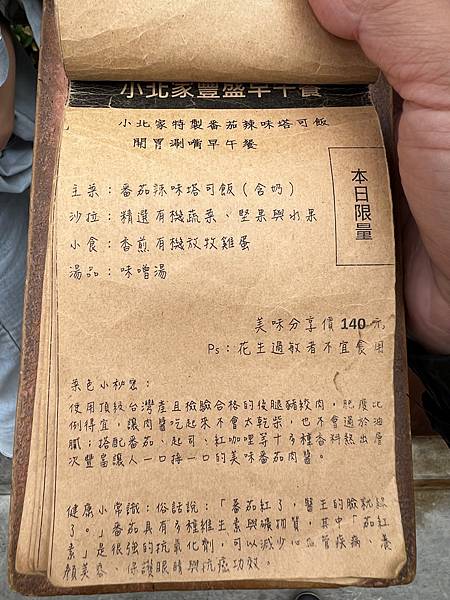 小北家豐盛早午餐
小北家特製番茄辣味塔可飯
開胃涮嘴早午餐
本日限量
主菜：番茄辣味塔可飯（含奶）
沙拉：精選有機蔬菜、堅果與水果
小食：香煎有機放牧雞蛋
湯品：味噌湯
美味分享價 140 元
Ps：花生過敏者不宜食用
菜色小秘密：
使用頂級台灣產且檢驗合格的後腿豬絞肉，肥瘦比
例得宜，讓肉醬吃起來不會太乾柴，也不會過於油
膩；搭配番茄、起司、紅咖哩等十多種香料熬出層
次豐富讓人一口接一口的美味番茄肉醬。
健康小常識：俗話說：「番茄紅了，醫生的臉就綠
了。」番茄具有多種維生素與礦物質，其中「茄紅
素」是很強的抗氧化劑，可以減少心血管疾病、養
顏美容、保護眼睛與抗癌功效。